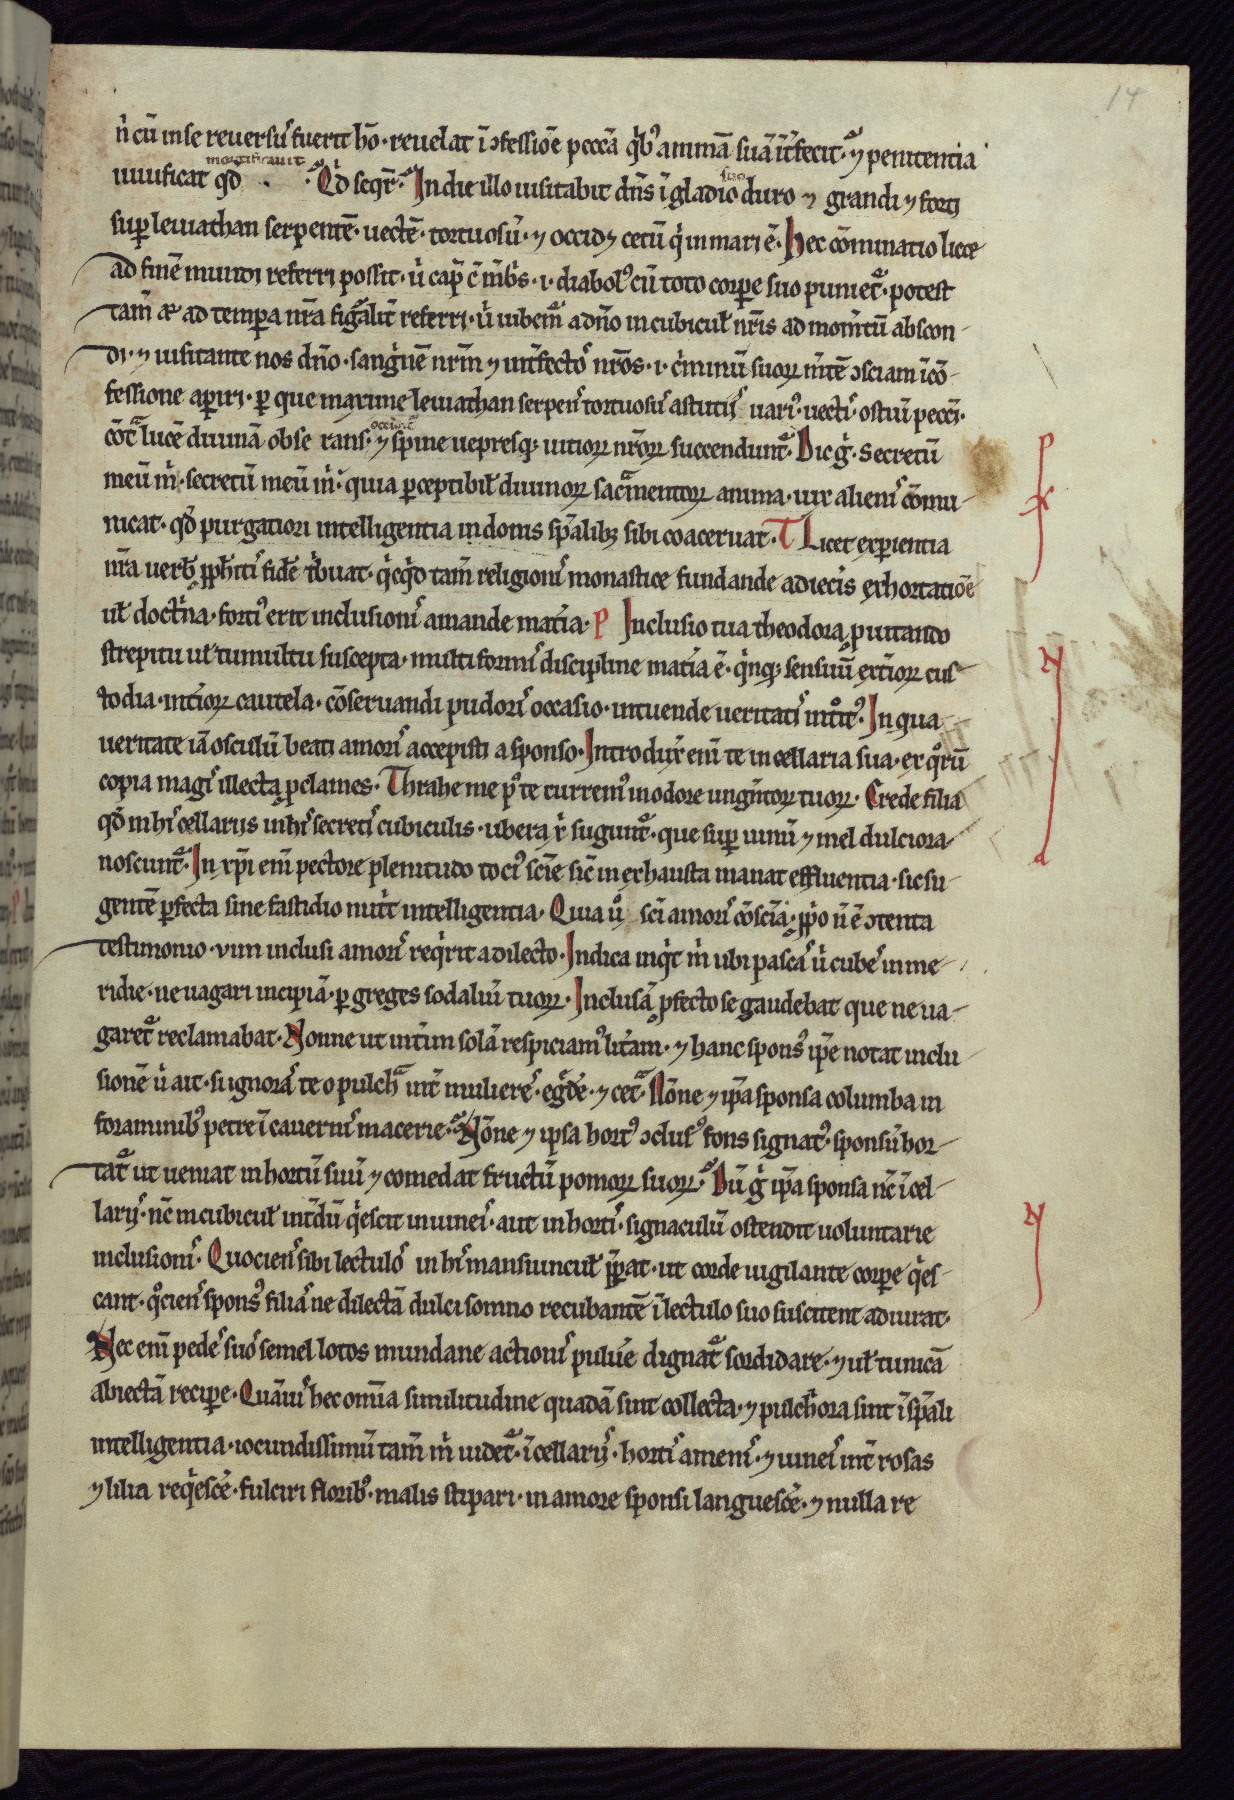 14
n̾ cū in se reuersꝰ fuerit hō · reuelat ī ɔfessiōe peccā q̇bꝰ animā suā īt̄fecit · ⁊ penitentia
uiuificat qđ mortificauit · Qđ seqr̄ · In die illo uisitabit dn̄s ī gladio suo duro ⁊ grandi ⁊ forti
sup̄ leuiathan serpentē · uectē · tortuosū · ⁊ occidꝫ cetū q̇ in mari ē · Hec cōminatio licet
ad finē mundi referri possit · u̇ cap̄ c̄ mb̄s · i · diabolꝰ cū toto corꝑe suo puniet᷑ · potest
tam̄ ⁊ ad temꝑa nr̄a fig̾alit̄ referri · u̇ iubem᷑ a dn̄o in cubicul̄ nr̄is ad mom̄tū abscon-
di · ⁊ uisitante nos dn̄o · sang̾nē nr̄m ⁊ int̄fectos nr̄os · i · c̾minū suoꝝ m̄tē ɔsciam ī cō-
fessione aꝑiri · ꝑ que maxime leuiathan serpens tortuosus astutijs uariꝰ · uectis ostiū pecci ·
cōt᷑ lucē diuinā obserans · occidit᷑ ⁊ spine uepresqꝫ uitioꝝ nr̄oꝝ succendunt᷑ · Dic g̾ · Secretū
meū m̾ · secretū meū m̾ · quia ꝑceptibil̄ diuinoꝝ sac̾mentoꝝ anima · uix alienis cōmu-
nicat · qđ purgatiori intelligentia in donis sp̄alibꝫ sibi coaceruat · T Licet exꝑientia
nr̄a uerb̄ ꝓph̄iti fidē t̾buat · q̇cq̇d tam̄ religionis monastice fundande adiecis exhortatiōe
ul̄ doct̾na · fortis erit inclusionis amande mat̄ia · P Inclusio tua theodora ꝓ uitando
strepitu ul̄ tumultu suscepta · multiformis discipline mat̄ia ē · q̇nqꝫ sensuū ext̄ioꝝ cus-
todia · int̄ioꝝ cautela · cōseruandi pudoris occasio · intuende ueritatis intuitꝰ · In qua
ueritate iā osculū beati amoris accepisti a sponso · Introduxit eni te in cellaria sua · ex q̊rū
copia magis illecta ꝓclames · Thrahe me pꝰ te curremꝰ in odore ung̾toꝝ tuoꝝ · Crede filia
qđ in his cellarijs in his secretis cubiculis · ubera xi sugunt᷑ · que sup̄ uinū ⁊ mel dulciora
noscunt᷑ · In xp̄i eni pectore plenitudo tociꝰ scīe sic̄ inexhausta manat effluentia · sic su-
gentē ꝑfecta sine fastidio nut̾t intelligentia · Quia u̾ sc̄i amoris cōscīa · ꝓp̄o n̄ ē ɔtenta
testimonio · uim inclusi amoris req̇rit a dilecto · Indica inq̇t m̾ ubi pascas u̇ cubes in me-
ridie · ne uagari incipiā · ꝑ greges sodaliū tuoꝝ · Inclusā ꝓfecto se gaudebat que ne ua-
garet᷑ reclamabat · Nonne ut int̄im solā respiciamꝰ litām · ⁊ hanc sponsꝰ ip̄e notat inclu-
sionē u̇ ait · si ignoras te o pulch̾ int̄ mulieres · eg̾dē · ⁊ cet᷑ · Nōne ⁊ ip̄a sponsa columba in
foraminibꝰ petre ī cauernis macerie · Nōne ⁊ ipsa hortꝰ ɔclusꝰ fons signatꝰ · sponsū hor-
tat᷑ ut ueniat in hortū suū ⁊ comedat fructū pomoꝝ suoꝝ · Dū g̾ ip̄a sponsa nc̄ ī cel-
larijs · nc̄ in cubicul̄ int̄dū q̇escit in uineis · aut in hortis · signaculū ostendit uoluntarie
inclusionis · Quociens sibi lectulos in his mansiuncul̄ p̄ꝑat · ut corde uigilante corꝑe q̇es-
cant · q̊ciens sponsꝰ filias ne dilectā dulci somno recubantē ī lectulo suo suscitent adiurat ·
Nec eni pedes suos semel lotos mundane actionis puluēe dignat᷑ sordidare · ⁊ ul̄ tunicā
abiectā reciꝑe · Quāuis hec omīa similitudine quadā sint collecta · ⁊ pulch̾ora sint ī sp̄ali
intelligentia · iocundissimū tam̄ m̾ uidet᷑ · ī cellarijs · hortis amenis · ⁊ uineis int̄ rosas
⁊ lilia req̇escēe · fulciri floribꝰ · malis stipari · in amore sponsi languescēe · ⁊ nulla re